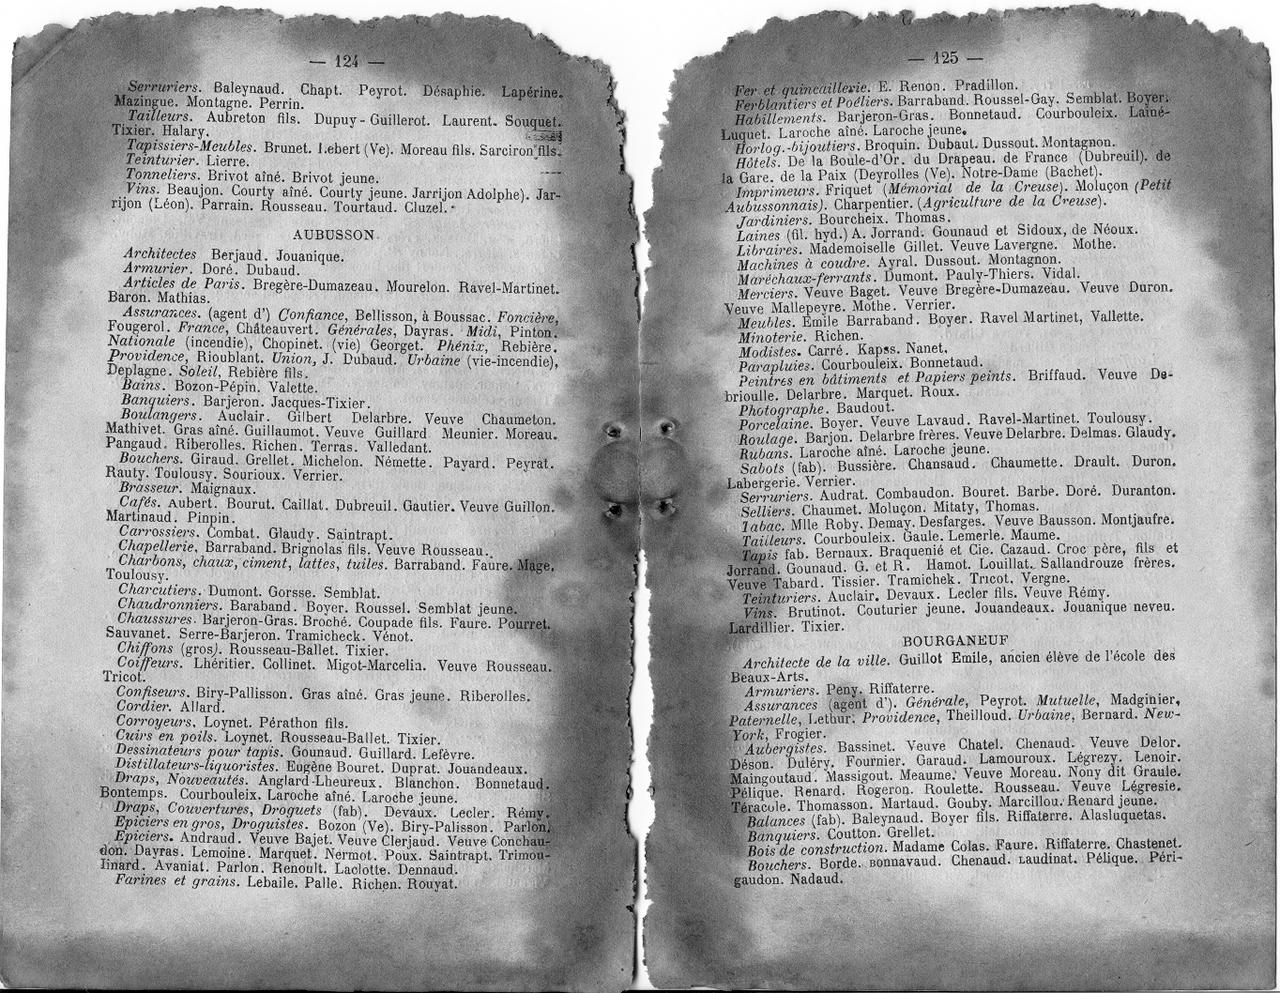 — 124 —
Serruriers. Baleynaud. Chapt. Peyrot. Désaphie. Lapérine.
Mazingue. Montagne. Perrin.
Tailleurs. Aubreton fils. Dupuy-Guillerot. Laurent. Souquet.
Tixier. Halary.
Tapissiers-Meubles. Brunet. Lebert (Ve). Moreau fils. Sarciron fils.
Teinturier. Lierre.
Tonneliers. Brivot aîné. Brivot jeune.
Vins. Beaujon. Courty aîné. Courty jeune. Jarrijon Adolphe). Jar-
rijon (Léon). Parrain. Rousseau. Tourtaud. Cluzel.
AUBUSSON.
Architectes Berjaud. Jouanique.
Armurier. Doré. Dubaud.
Articles de Paris. Bregère-Dumazeau. Mourelon. Ravel-Martinet.
Baron. Mathias.
Assurances. (agent d') Confiance, Bellisson, à Boussac. Foncière,
Fougerol. France, Châteauvert. Générales, Dayras. Midi, Pinton.
Nationale (incendie), Chopinet. (vie) Georget. Phénix, Rebière.
Providence, Rioublant. Union, J. Dubaud. Urbaine (vie-incendie),
Deplagne. Soleil, Rebière fils.
Bains. Bozon-Pépin. Valette.
Banquiers. Barjeron. Jacques-Tixier.
Boulangers. Auclair. Gilbert Delarbre. Veuve Chaumeton.
Mathivet. Gras aîné. Guillaumot. Veuve Guillard Meunier. Moreau.
Pangaud. Riberolles. Richen. Terras. Valledant.
Bouchers. Giraud. Grellet. Michelon. Némette. Payard. Peyrat.
Rauty. Toulousy. Sourioux. Verrier.
Brasseur. Maignaux.
Cafés. Aubert. Bourut. Caillat. Dubreuil. Gautier. Veuve Guillon.
Martinaud. Pinpin.
Carrossiers. Combat. Glaudy. Saintrapt.
Chapellerie, Barraband. Brignolas fils. Veuve Rousseau.
Charbons, chaux, ciment, lattes, tuiles. Barraband. Faure. Mage.
Toulousy.
Charcutiers. Dumont. Gorsse. Semblat.
Chaudronniers. Baraband. Boyer. Roussel. Semblat jeune.
Chaussures. Barjeron-Gras. Broché. Coupade fils. Faure. Pourret.
Sauvanet. Serre-Barjeron. Tramicheck. Vénot.
Chiffons (gros). Rousseau-Ballet. Tixier.
Coiffeurs. Lhéritier. Collinet. Migot-Marcelin. Veuve Rousseau.
Tricot.
Confiseurs. Biry-Pallisson. Gras aîné. Gras jeune. Riberolles.
Cordier. Allard.
Corroyeurs. Loynet. Pérathon fils.
Cuirs en poils. Loynet. Rousseau-Ballet. Tixier.
Dessinateurs pour tapis. Gounaud. Guillard. Lefèvre.
Distillateurs-liquoristes. Eugène Bouret. Duprat. Jouandeaux.
Draps, Nouveautés. Anglard-Lheureux. Blanchon. Bonnetaud.
Bontemps. Courbouleix. Laroche aîné. Laroche jeune.
Draps, Couvertures, Droguets (fab). Devaux. Lecler. Rémy.
Epiciers en gros, Droguistes. Bozon (Ve). Biry-Palisson. Parlon.
Epiciers. Andraud. Veuve Bajet. Veuve Clerjaud. Veuve Conchau-
don. Dayras. Lemoine. Marquet. Nermot. Poux. Saintrapt. Trimou-
linard. Avaniat. Parlon. Renoult. Laclotte. Dennaud.
Farines et grains. Lebaile. Palle. Richen. Rouyat.
— 125 —
Fer et quincaillerie. E. Renon. Pradillon.
Ferblantiers et Poëliers. Barraband. Roussel-Gay. Semblat. Boyer.
Habillements. Barjeron-Gras. Bonnetaud. Courbouleix. Lainé-
Luquet. Laroche aîné. Laroche jeune.
Horlog.-bijoutiers. Broquin. Dubaut. Dussout. Montagnon.
Hôtels. De la Boule-d'Or. du Drapeau. de France (Dubreuil). de
la Gare. de la Paix (Deyrolles (Ve). Notre-Dame (Bachet).
Imprimeurs. Friquet (Mémorial de la Creuse). Moluçon (Petit
Aubussonnais). Charpentier. (Agriculture de la Creuse).
Jardiniers. Bourcheix. Thomas.
Laines (fil. hyd.) A. Jorrand. Gounaud et Sidoux, de Néoux.
Libraires. Mademoiselle Gillet. Veuve Lavergne. Mothe.
Machines à coudre. Ayral. Dussout. Montagnon.
Maréchaux-ferrants. Dumont. Pauly-Thiers. Vidal.
Merciers. Veuve Baget. Veuve Bregère-Dumazeau. Veuve Duron.
Veuve Mallepeyre. Mothe. Verrier.
Meubles. Emile Barraband. Boyer. Ravel Martinet, Vallette.
Minoterie. Richen.
Modistes. Carré. Kapss. Nanet.
Parapluies. Courbouleix. Bonnetaud.
Peintres en bâtiments et Papiers peints. Briffaud. Veuve De-
brioulle. Delarbre. Marquet. Roux.
Photographe. Baudout.
Porcelaine. Boyer. Veuve Lavaud. Ravel-Martinet. Toulousy.
Roulage. Barjon. Delarbre frères. Veuve Delarbre. Delmas. Glaudy.
Rubans. Laroche aîné. Laroche jeune.
Sabots (fab). Bussière. Chansaud. Chaumette. Drault. Duron.
Labergerie. Verrier.
Serruriers. Audrat. Combaudon. Bouret. Barbe. Doré. Duranton.
Selliers. Chaumet. Moluçon. Mitaty, Thomas.
Tabac. Mlle Roby. Demay. Desfarges. Veuve Bausson. Montjaufre.
Tailleurs. Courbouleix. Gaule. Lemerle. Maume.
Tapis fab. Bernaux. Braquenié et Cie. Cazaud. Croc père, fils et
Jorrand. Gounaud. G. et R. Hamot. Louillat. Sallandrouze frères.
Veuve Tabard. Tissier. Tramichek. Tricot. Vergne.
Teinturiers. Auclair. Devaux. Lecler fils. Veuve Rémy.
Vins. Brutinot. Couturier jeune. Jouandeaux. Jouanique neveu.
Lardillier. Tixier.
BOURGANEUF
Architecte de la ville. Guillot Emile, ancien élève de l'école des
Beaux-Arts.
Armuriers. Peny. Riffaterre.
Assurances (agent d'). Générale, Peyrot. Mutuelle, Madginier,
Paternelle, Lethur. Providence, Theilloud. Urbaine, Bernard. New-
York, Frogier.
Aubergistes. Bassinet. Veuve Chatel. Chenaud. Veuve Delor.
Déson. Duléry. Fournier. Garaud. Lamouroux. Légrezy. Lenoir.
Maingoutaud. Massigout. Meaume. Veuve Moreau. Nony dit Graule.
Pélique. Renard. Rogeron. Roulette. Rousseau. Veuve Légresie.
Téracole. Thomasson. Martaud. Gouby. Marcillou. Renard jeune.
Balances (fab). Baleynaud. Boyer fils. Riffaterre. Alasluquetas.
Banquiers. Coutton. Grellet.
Bois de construction. Madame Colas. Faure. Riffaterre. Chastenet.
Bouchers. Borde. Bonnavaud. Chenaud. Laudinat. Pélique. Péri-
gaudon. Nadaud.